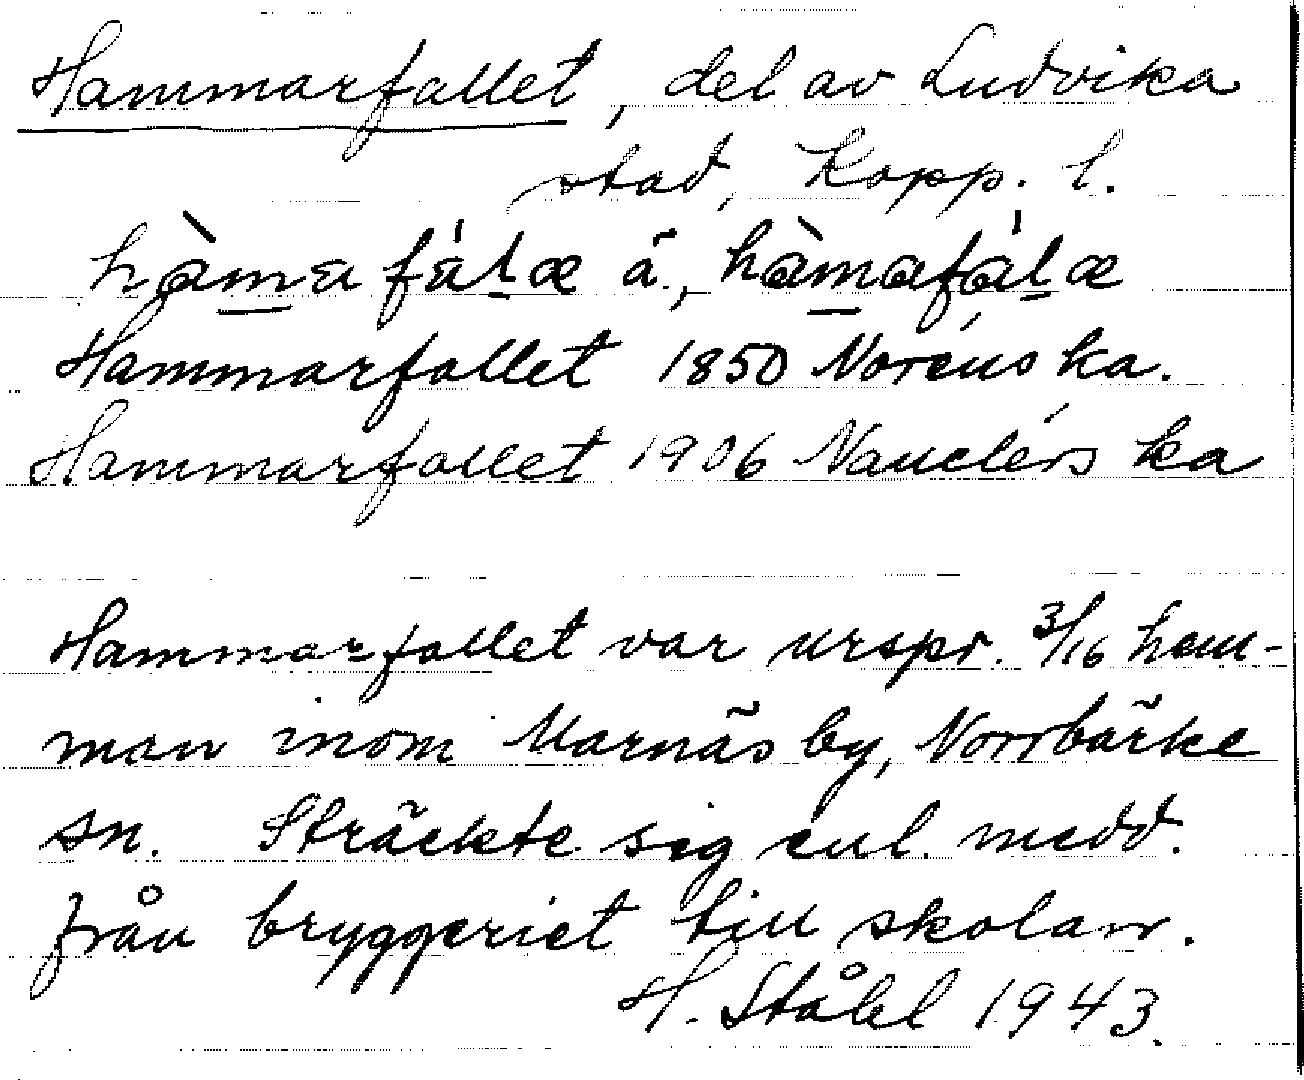 Hammarfallet, del av Ludvika
stad, Kopp. l.
hàmafálæ ä., hàmafálæ
Hammarfallet 1850 Noréns ka.
Hammarfallet 1906 Nauclérs ka
Hammarfallet var urspr. 3/16 hem-
man inom Marnäs by, Norrbärke
sn. Sträckte sig enl. medd.
från bryggeriet till skolan.
H. Ståhl 1943.